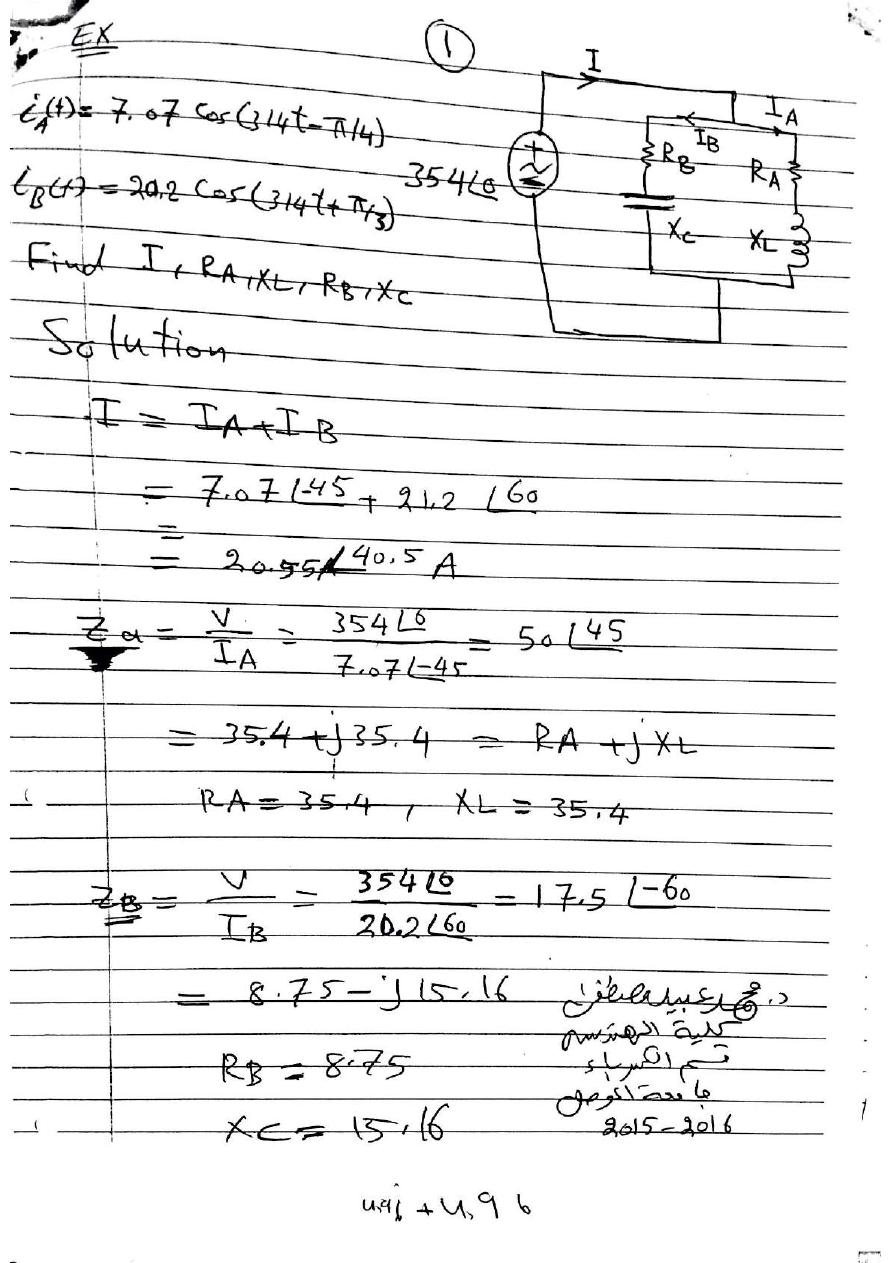 EX
①
I
i_A(t) = 7.07 Cos(314t-π/4)
I_A
I_B
R_B
R_A
i_B(t) = 20.2 Cos(314t+π/3)
354∠0
X_C
X_L
Find I, RA, XL, RB, XC
Solution
I = IA+IB
= 7.07∠-45 + 21.2 ∠60
=
= 20.55∠40.5 A
Za = V/IA = 354∠0/7.07∠-45 = 50∠45
= 35.4 + j35.4 = RA + jXL
RA = 35.4, XL = 35.4
ZB = V/IB = 354∠0/20.2∠60 = 17.5 ∠-60
= 8.75 - j15.16
د. محمد عبيد
كلية الهندسة
RB = 8.75
قسم الكهرباء
جامعة الموصل
XC = 15.16
2015-2016